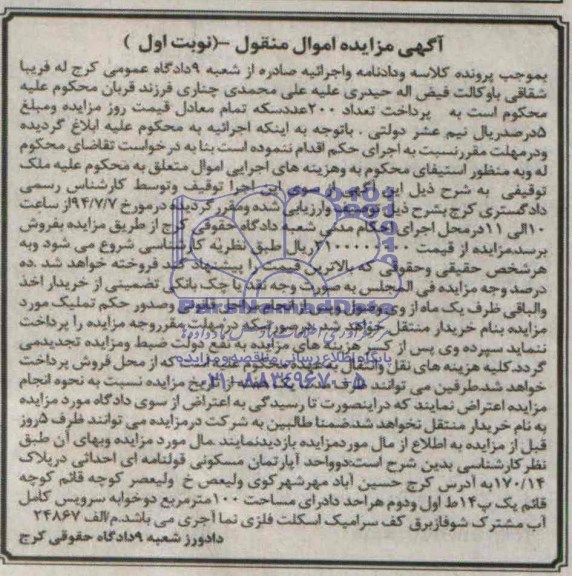 آگهی مزایده اموال منقول -(نوبت اول )
بموجب پرونده کلاسه ودادنامه واجرائیه صادره از شعبه ۹دادگاه عمومی کرج له فریبا
شقاقی باوکالت فیض اله حیدری علیه علی محمدی چناری فرزند قربان محکوم علیه
محکوم است به پرداخت تعداد ۲۰۰عددسکه تمام معادل قیمت روز مزایده ومبلغ
۵درصدریال نیم عشر دولتی . باتوجه به اینکه اجرائیه به محکوم علیه ابلاغ گردیده
ودرمهلت مقررنسبت به اجرای حکم اقدام ننموده است بنا به درخواست تقاضای محکوم
له وبه منظور استیفای محکوم به وهزینه های اجرایی اموال متعلق به محکوم علیه ملک
توقیفی به شرح ذیل این آگهی از سوی این اجرا توقیف وتوسط کارشناس رسمی
دادگستری کرج بشرح ذیل توصیف وارزیابی شده ومقررگردیده درمورخ ۹۴/۷/۷از ساعت
۱۰الی ۱۱درمحل اجرای احکام مدنی شعبه دادگاه حقوقی کرج از طریق مزایده بفروش
برسدمزایده از قیمت ریال طبق نظریه کارشناسی شروع می شود وبه
هرشخص حقیقی وحقوقی که بالاترین قیمت را پیشنهاد کند فروخته خواهد شد .ده
درصد وجه مزایده فی المجلس به صورت وجه نقد یا چک بانکی تضمینی از خریدار اخذ
والباقی ظرف یک ماه از وی وصول وپس از انجام مراحل قانونی وصدور حکم تملیک مورد
مزایده بنام خریدار منتقل خواهد شد.درصورتیکه درمهلت مقرروجه مزایده را پرداخت
ننماید سپرده وی پس از کسر هزینه های مزایده به نفع دولت ضبط ومزایده تجدیدمی
گردد.کلیه هزینه های نقل وانتقال به عهده محکوم علیه است که از محل فروش پرداخت
خواهد شد.طرفین می توانند ظرف مزایده نسبت به نحوه انجام
مزایده اعتراض نمایند که دراینصورت تا رسیدگی به اعتراض از سوی دادگاه مورد مزایده
به نام خریدار منتقل نخواهد شد.ضمنا طالبین به شرکت درمزایده می توانند ظرف ۵روز
قبل از مزایده به اطلاع از مال موردمزایده بازدیدنمایند .مال مورد مزایده وبهای آن طبق
نظر کارشناسی بدین شرح است:دوواحد آپارتمان مسکونی قولنامه ای احداثی درپلاک
۱۷۰/۱۴به آدرس کرج حسین آباد مهرشهر کوی ولیعصر خ ولیعصر کوچه قائم کوچه
قائم یک پ۱۴ط اول ودوم هراحد دادرای مساحت ۱۰۰مترمربع دوخوابه سرویس کامل
آب مشترک شوفاژبرق کف سرامیک اسکلت فلزی نما آجری می باشد.م/الف ۲۴۸۶۷
دادورز شعبه ۹دادگاه حقوقی کرج
ParsNamadData
پایگاه اطلاع رسانی مناقصه و مزایده
۰۲۱-۸۸۳۴۹۶۷۰-۵